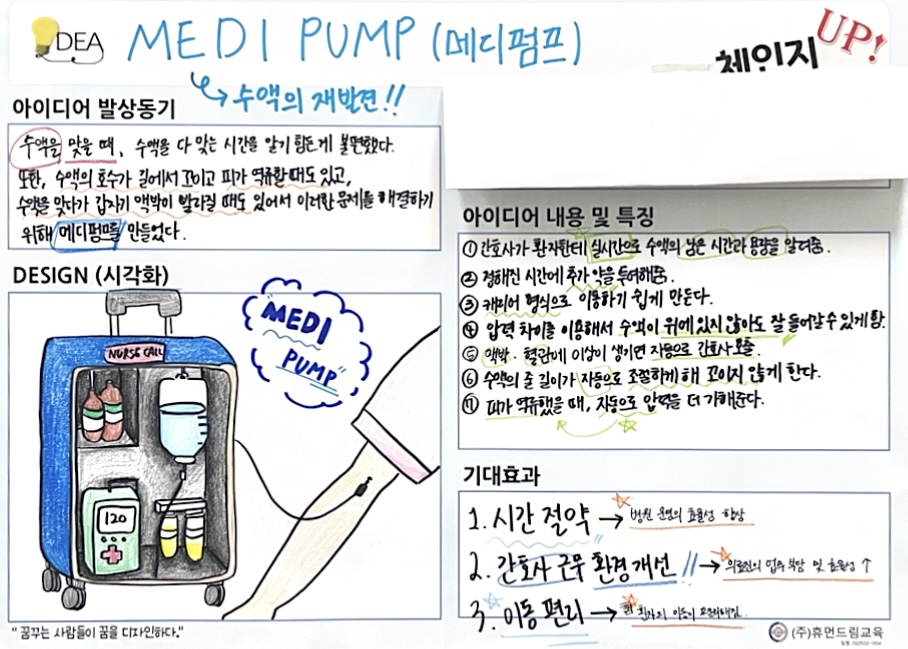 IDEA
MEDI PUMP (메디펌프)
체인지UP!
수액의 재발견!!
아이디어 발상동기
수액을 맞을 때, 수액을 다 맞는 시간을 알기 힘든게 불편했다.
또한, 수액의 호수가 길에서 꼬이고 피가 역류할때도 있고,
수액을 맞다가 갑자기 맥박이 빨라질 때도 있어서 이러한 문제를 해결하기
위해 메디펌프를 만들었다.
DESIGN (시각화)
"MEDI
PUMP"
NURSE CALL
120
"꿈꾸는 사람들이 꿈을 디자인하다."
아이디어 내용 및 특징
① 간호사가 환자한테 실시간으로 수액의 남은 시간과 용량을 알려줌.
② 정해진 시간에 추가 약을 투여해줌.
③ 캐리어 형식으로 이동하기 쉽게 만든다.
④ 압력 차이를 이용해서 수액이 위에 있지 않아도 잘 들어갈 수 있게 함.
⑤ 맥박·혈관에 이상이 생기면 자동으로 간호사 호출.
⑥ 수액의 줄 길이가 자동으로 조절하게 해 꼬이지 않게 한다.
⑦ 피가 역류했을 때, 자동으로 압력을 더 가해준다.
기대효과
1. 시간 절약 → 병원 운영의 효율성 향상
2. 간호사 근무 환경개선 // → 의료진의 업무 부담 및 효율성 ↑
3. 이동 편리 → 환자의 이동이 편리해짐.
(주)휴먼드림교육